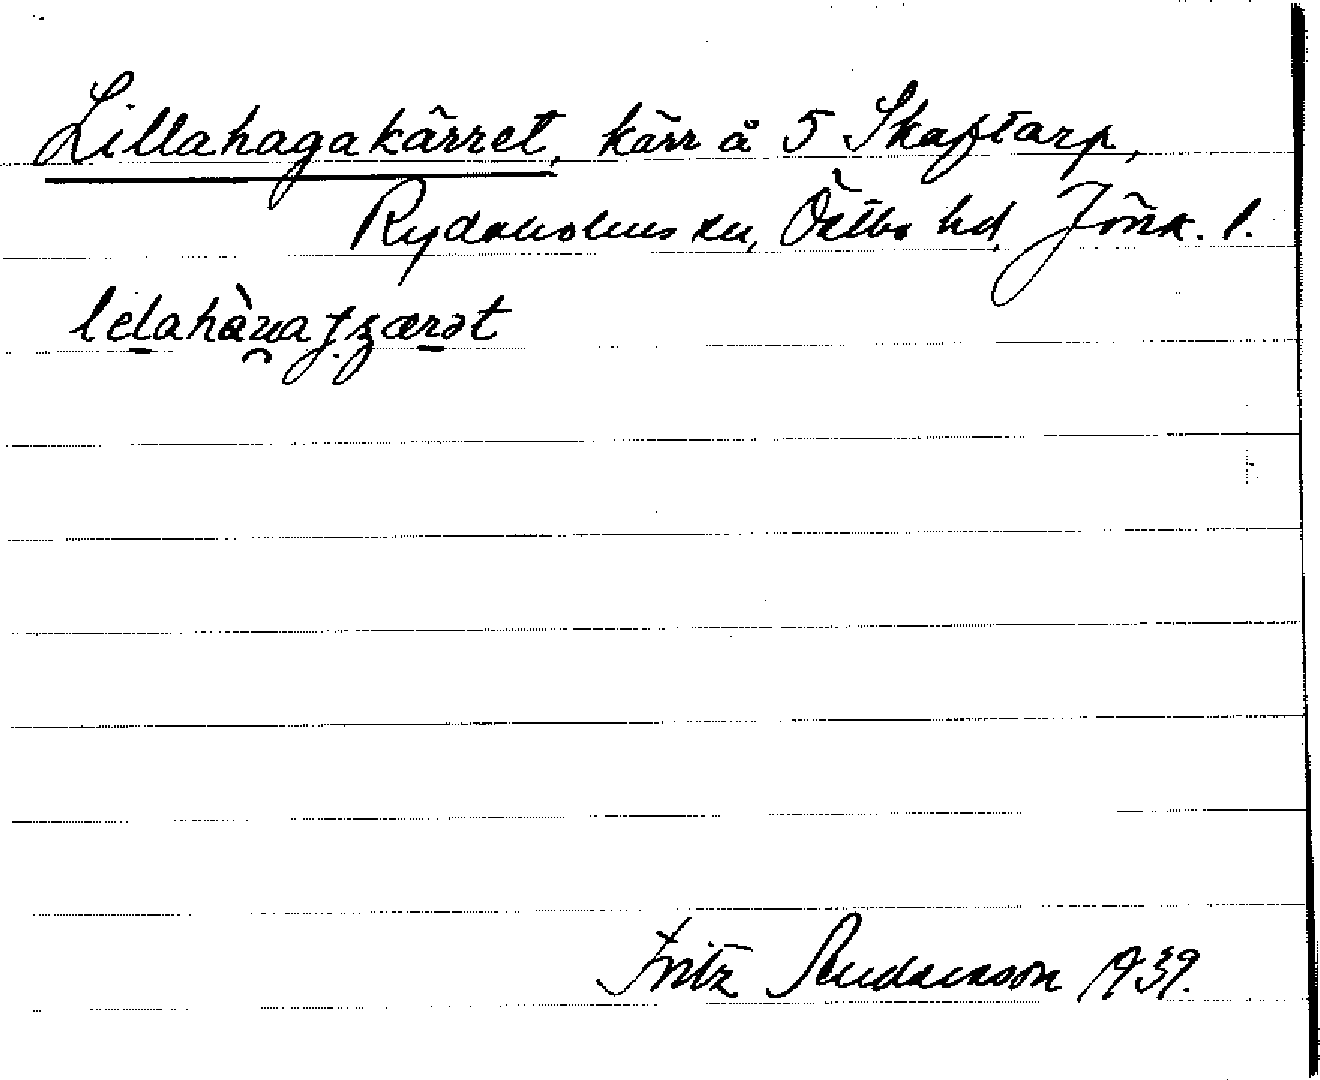 Lillahagakärret, kärr å 5 Skaftarp,
Rydaholms sn, Östbo hd, Jönk. l.
Fritz Andersson 1939.